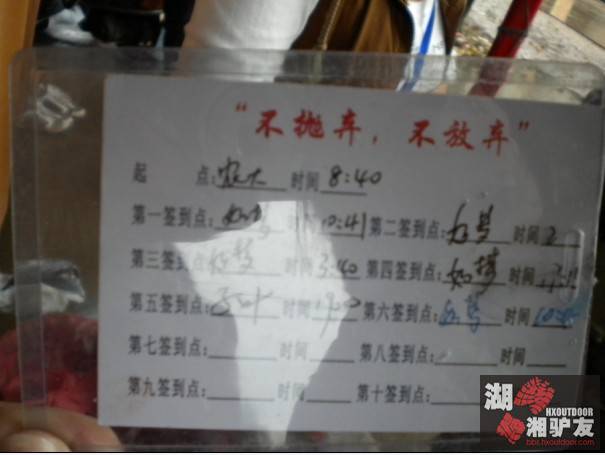 “不抛弃，不放弃”
起 点：农大 时间 8:40
第一签到点：如梦 时间 10:41 第二签到点：如梦 时间
第三签到点：如梦 时间 3:40 第四签到点：如梦 时间
第五签到点： 时间 第六签到点：如梦 时间
第七签到点： 时间 第八签到点： 时间
第九签到点： 时间 第十签到点：
湖湘驴友
HXOUTDOOR
bbs.hxoutdoor.com